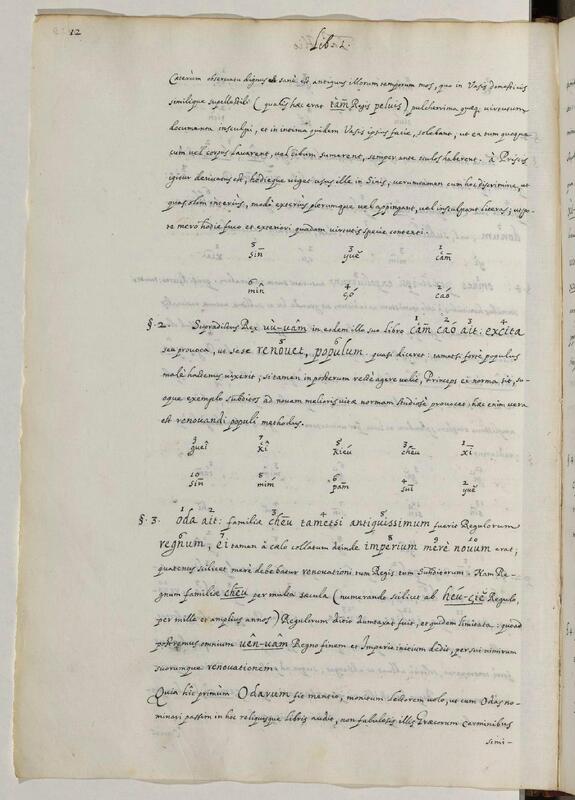 12
Lib. 1.
Caeterùm observatu dignus est sanè antiquus illorum temporum mos, quo in Vasis domesticis
similique supellectili (qualis haec erat tam̄ Regis peluis) pulcherrima quaeq. virtutum
documenta insculpi, et in intima quidem Vasis ipsius facie, solebant, ut ea tum quotquot
cùm vel corpus lavarent, vel cibum sumerent, semper ante oculos haberent. à Priscis
igitur derivatus est, hodieque viget usus ille in Sinis, verumtamen cum hoc discrimine, ut
quas olim interius, modò exterius plerumque vel appingant, vel insculpant literas;
te merò hodie fuco et exteriori quadam virtutis specie contenti.
5 3 1
sin̄ yuĕ c̄am
6 4 2
mîn çó caó
§. 2. Supradictus Rex ùu-uâm in eodem illo suo libro c̄am caó ait: excita
seu provoca, ut sese renouet, populum. quasi diceret: tametsi fortè populus
malè hactenus vixerit; si tamen in posterum rectè agere velit, Princeps ei norma sit, su-
oque exemplo subditos ad novam melioris vitae normam studiosè provocet. haec enim vera
est renouandi populi methodus.
9 7 5 3 1
guêi kî kiéu cheū xī
10 8 6 4 2
sin̄ mím pam̄ suī yuĕ
§. 3. Oda ait: familiae cheū tametsi antiquissimum fuerit Regulorum
regnum, ei tamen à caelo collatum deinde imperium merè nouum erat;
quatenus scilicet merè debebatur renovationi tum Regis tum Subditorum. Nam Re-
gnum familiae cheū per multa saecula (numerando scilicet ab héu-çiĕ Regulo,
per mille et amplius annos) Regulorum ditio dumtaxat fuit, et quidem limitata: quoad
postremus omnium uên-uâm Regno finem et Imperio initium dedit, per sui nimirum
suorumque renouationem.
Quia hîc primùm Odarum fit mentio, monitum Lectorem volo, ut cum Odas no-
minari passim in hoc reliquisque libris audit, non fabulosis illis Graecorum carminibus
simi-